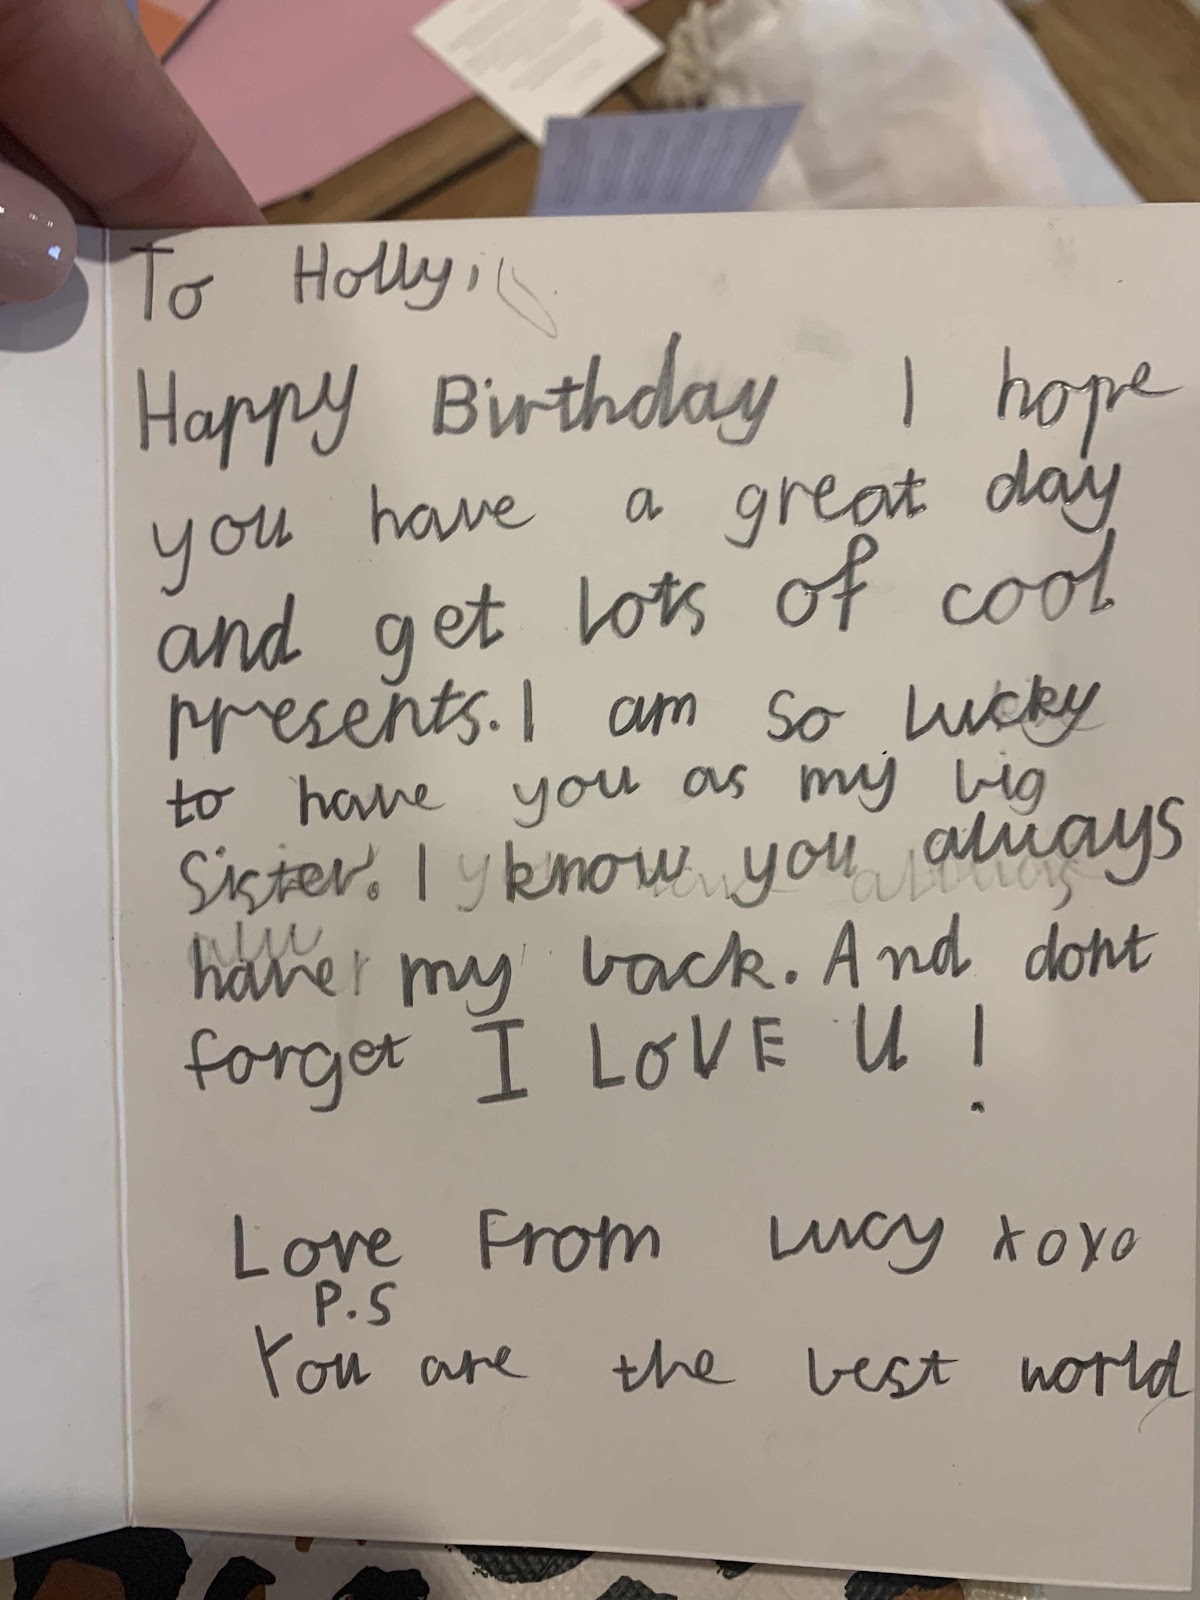 To Holly,
Happy Birthday I hope
you have a great day
and get lots of cool
presents. I am so lucky
to have you as my big
sister. I know you always
have my back. And dont
forget I LOVE U !
Love From Lucy xoxo
P.S
You are the best world